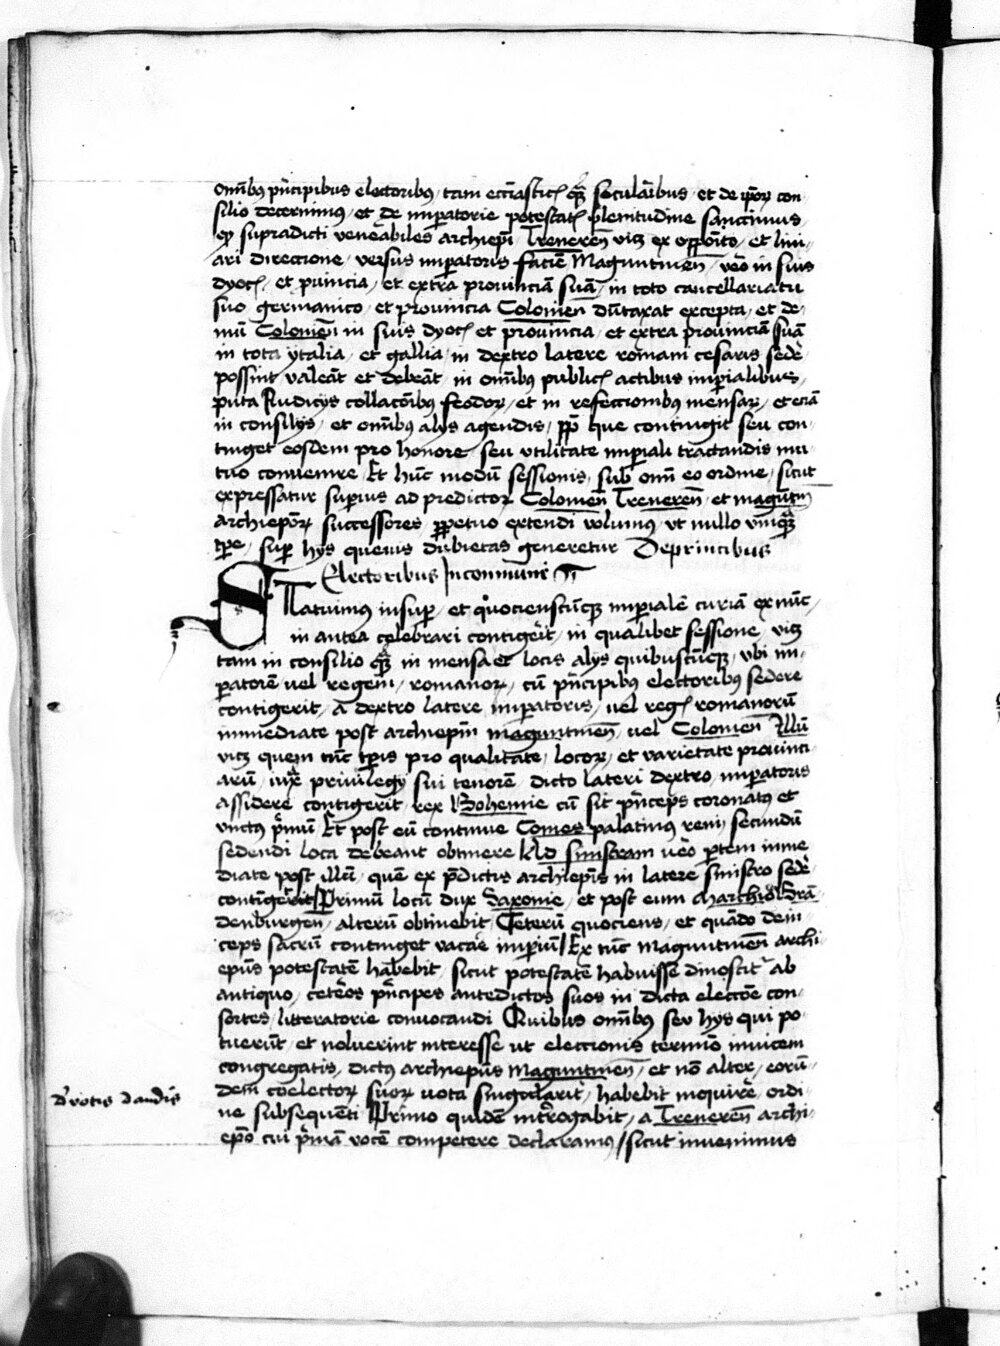 omībus pͥncipibus electoribus, tam ecc̄iasticꝭ qꝫ seculāibus, et de ip̄oꝝ con
silio decernimus, et de imꝑatorie potestatꝭ plenitudine sanccimus
ꝙ supradicti venerabiles archiep̄i Treueren̄ vicꝫ ex opp̄oito, et lini
ari direccione, versus imꝑatoris faciē Maguntinen̄, vēo in suis
dyocꝭ, et ꝓuincia, et extra prouinciā suā, in toto cancellariatu
suo germanico, et prouincia Colonien̄ dūtaxat excepta, et de
mū Colonien̄ in suis dyocꝭ et prouincia, et extra prouinciā suā
in tota ytalia, et gallia, in dextro latere romani cesaris sedē
possint valeāt et debeāt, in omībus publicꝭ actibus imperialibus,
puta Iudicijs collacōibus feodoꝝ, et in refeccionibus mensaꝝ, et eciā
in consilijs, et omībus alijs agendis, ꝓpt̄ que contingit seu con
tinget eosdem pro honore, seu vtilitate imperiali tractandis mu
tuo conuenire Et hūc modū sessionis, sub om̄i eo ordine, sicut
expressatur superius ad predictoꝝ Colonien̄ Treueren̄, et magūtin̄
archiep̄oꝝ successores ꝑpetuo extendi volumus, vt nullo vnꝙꝫ
tꝑe, super hijs queuis dubietas generetur De principibus
Electoribus In communi
Statuimus insuꝑ, et qͦcienscūcꝫ imperialē curiā ex nūc,
in antea celebrari contigerit, in qualibet sessione, vicꝫ
tam in consilio qꝫ in mensa et locis alijs quibuscūcꝫ, vbi im
ꝑatorē uel regem, romanoꝝ, cū pͥncipibus electoribus sedere
contigerit, a dextro latere imperatoris, uel regꝭ romanorū
immediate post archiep̄m maguntinen̄, uel Colonien̄ Illū
vicꝫ quem tūc tꝑis pro qualitate, locoꝝ, et varietate prouinci
arū, iuxͣ priuilegij sui tenorē, dicto lateri dextro, imperatoris
assidere contigerit, rex Bohemie cū sit pͥnceps coronatus et
vnctus pͥmū Et post eū continue Comes palatinus reni, secundū
sedendi loca debeant obtinere Ad sinistram ueo ꝑtem imme
diate post illū, quē ex p̄dictis archiep̄is in latere sinistro sedē
contigerit Primū locū dux Saxonie, et post eum Marchio Bran
denburgen̄, alterū obtinebit Ceterū quociens, et quādo dein
ceps sacrū continget vacare imperiū Ex tūc Maguntinen̄ archi
ep̄us potestatē habebit, sicut potestatē habuisse dinoscit͛ ab
antiquo, ceteros pͥncipes antedictos suos in dicta elecc̄oe con
sortes, litteratorie conuocandi Quibus omībus seu hijs qui po
tuerūt, et uoluerint interesse ut eleccionis termīo inuicem
congregatis, dictus archiep̄us maguntinen̄, et nō alter, eorū
dem coelectoꝝ suoꝝ uota singularit͛, habebit inquirē, ordi
ne subsequēti Primo quidē int̄rogabit, a Treueren̄ archi
ep̄o cui pͥmā vocē competere declaramus, sicut inuenimus
d' votis dandis